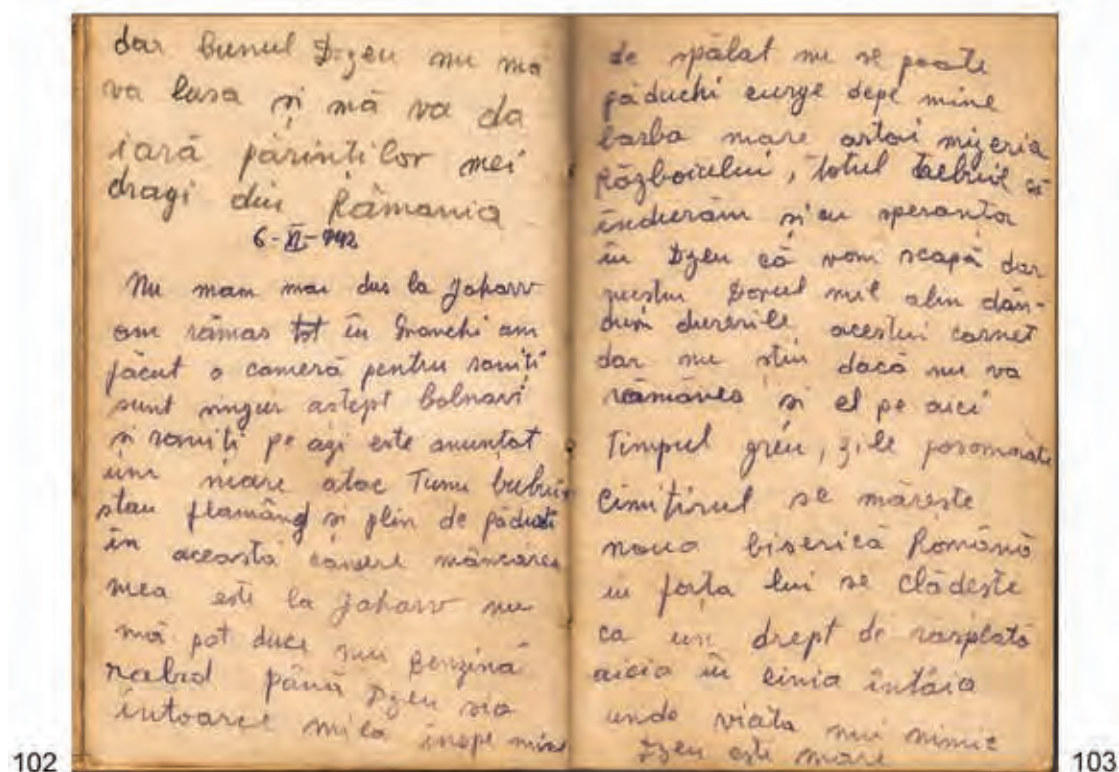 dar bunul Dzeu nu mă
va lasa și mă va da
iară părinților mei
dragi din Rămania
6-XI-942
Nu mam mai dus la Jaharv
am rămas tot în am
făcut o cameră pentru raniți
sunt singur astept bolnavi
si raniți pe azi este anunțat
unu mare atac Tunu bubuie
stau flamând si plin de păduchi
în această camere mâncarea
mea este la Jaharv nu
mă pot duce nui benzină
rabd până Dzeu sia
intoarce mila inspe mine
102
de spălat nu se poate
păduchi curge depe mine
barba mare astai mizeria
războiului, totul trebuie să
indurăm și cu speranța
in Dzeu că vom scapă dar
nustiu Dorul mil alin dân-
dui durerile acestui carnet
dar nu stiu dacă nu va
rămânea si el pe aici
Timpul greu, zile posomorate
Cimitirul se măreste
noua biserică Română
in fața lui se clădeste
ca un drept de rasplată
aicia in linia întâia
unde viata nui nimic
Dzeu este mare
103